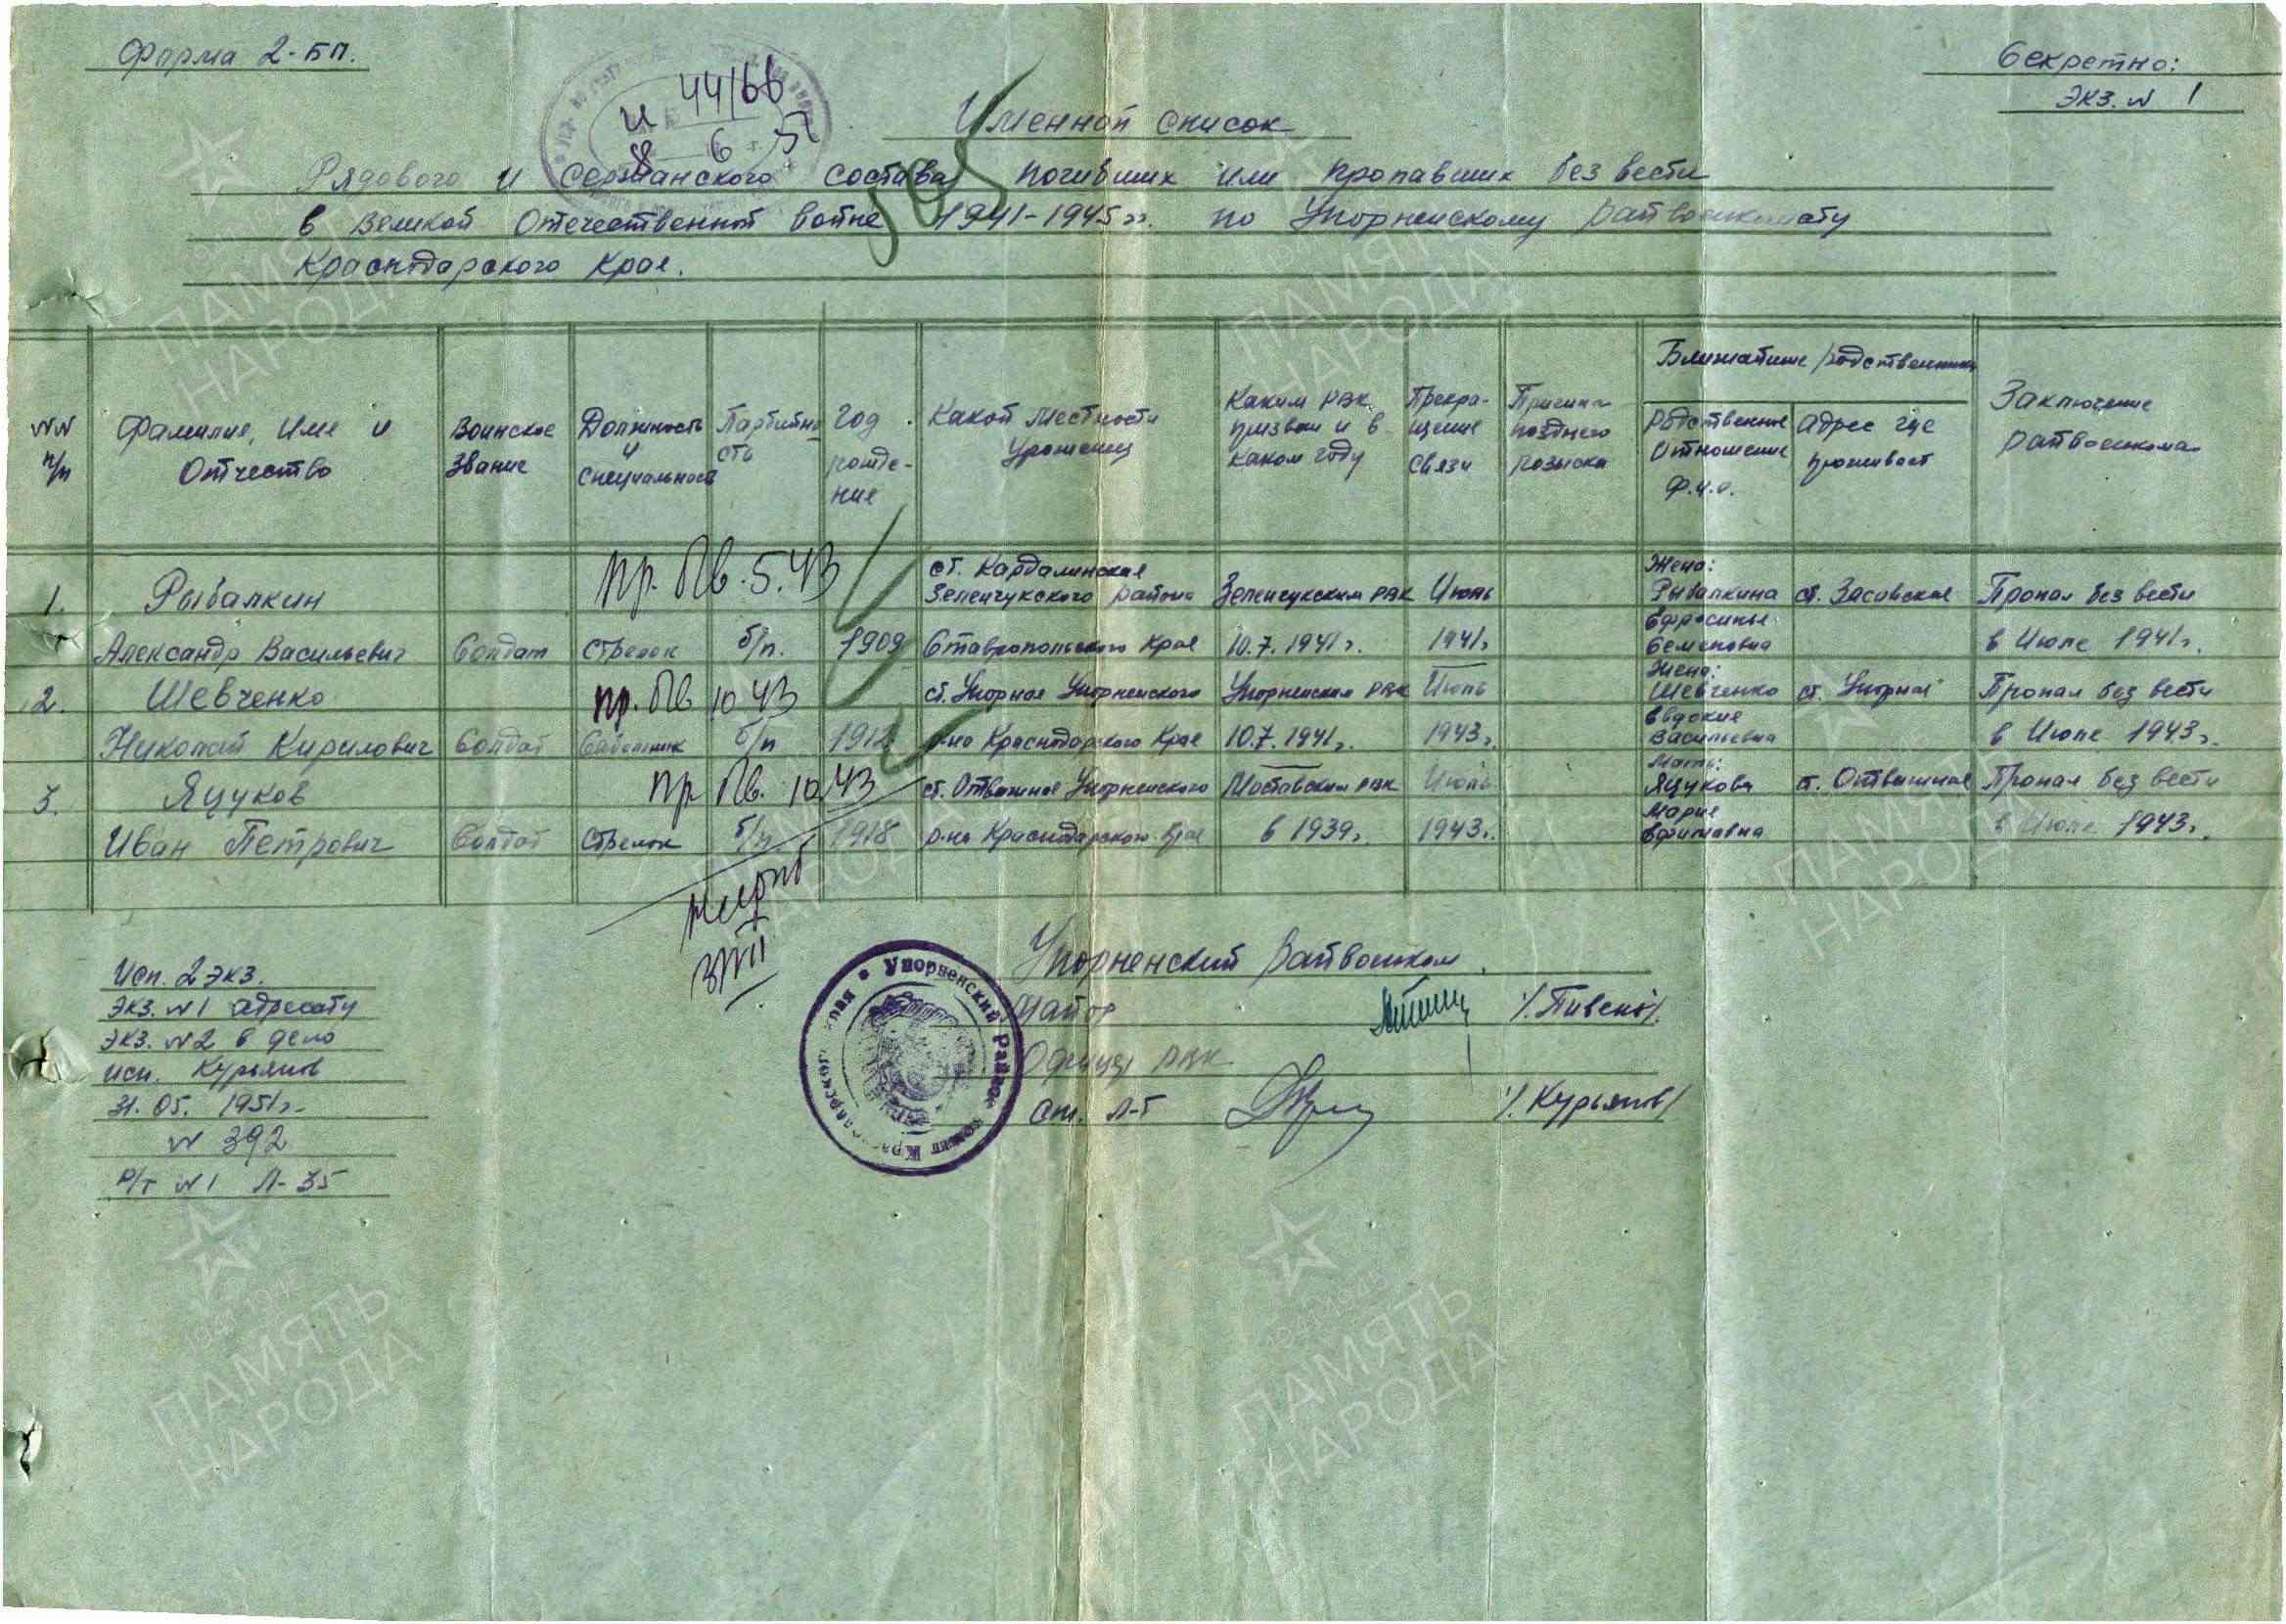 Форма 2-БП.
Секретно:
Экз. № 1
и 44166
8 6 51
Именной список
Рядового и Сержанского состава погибших или пропавших без вести
в Великой Отечественной войне 1941-1945 гг. по Упорненскому райвоенкомату
Краснодарского Края.
№№ п/п
Фамилия, Имя и Отчество
Воинское Звание
Должность и специальность
Партийность
Год рождения
Какой местности Уроженец
Каким РВК призван и в каком году
Прекращение связи
Причина позднего розыска
Ближайшие родственники
Родственное Отношение Ф.И.О.
Адрес где проживает
Заключение райвоенкома
пр. б/в. 5.43
1. Рыбалкин Александр Васильевич
Солдат
Стрелок
б/п.
1909
ст. Кардалинская Зеленчукского района Ставропольского Края
Зеленчукским РВК 10.7.1941 г.
Июль 1941 г.
Жена: Рыбалкина Ефросинья Семеновна
ст. Засовская
Пропал без вести в Июле 1941 г.
пр. б/в 10 43
2. Шевченко Николай Кирилович
Солдат
б/п
1912
ст. Упорная Упорненского р-на Краснодарского Края
Упорненским РВК 10.7.1941 г.
Июль 1943 г.
Жена: Шевченко Евдокия Васильевна
ст. Упорная
Пропал без вести в Июле 1943 г.
пр б/в. 10 43
3. Яцуков Иван Петрович
Солдат
Стрелок
б/п
1918
ст. Отважная Упорненского р-на Краснодарского Края
Мостовским РВК в 1939 г.
Июль 1943 г.
Мать: Яцукова Мария Ефимовна
ст. Отважная
Пропал без вести в Июле 1943 г.
Упорненский Райвоенком
Майор /Пивень/.
Офицер РВК
Ст. Л-т /Курьянов/
Упорненский Райвоен
Исп. 2 экз.
Экз. №1 адресату
Экз. №2 в дело
исп. Курьянов
31.05. 1951 г.
№ 392
Р/т №1 Л-35
1941-1945
ПАМЯТЬ НАРОДА